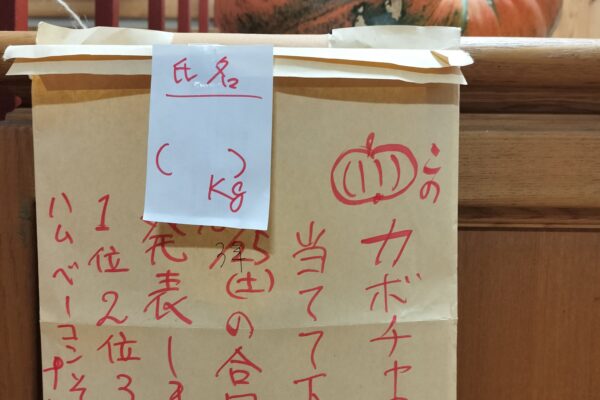 氏名
( )
Kg
この
カボチャ
当てて下
(土)の合
発表しま
1位2位3
ハムベーコンそ